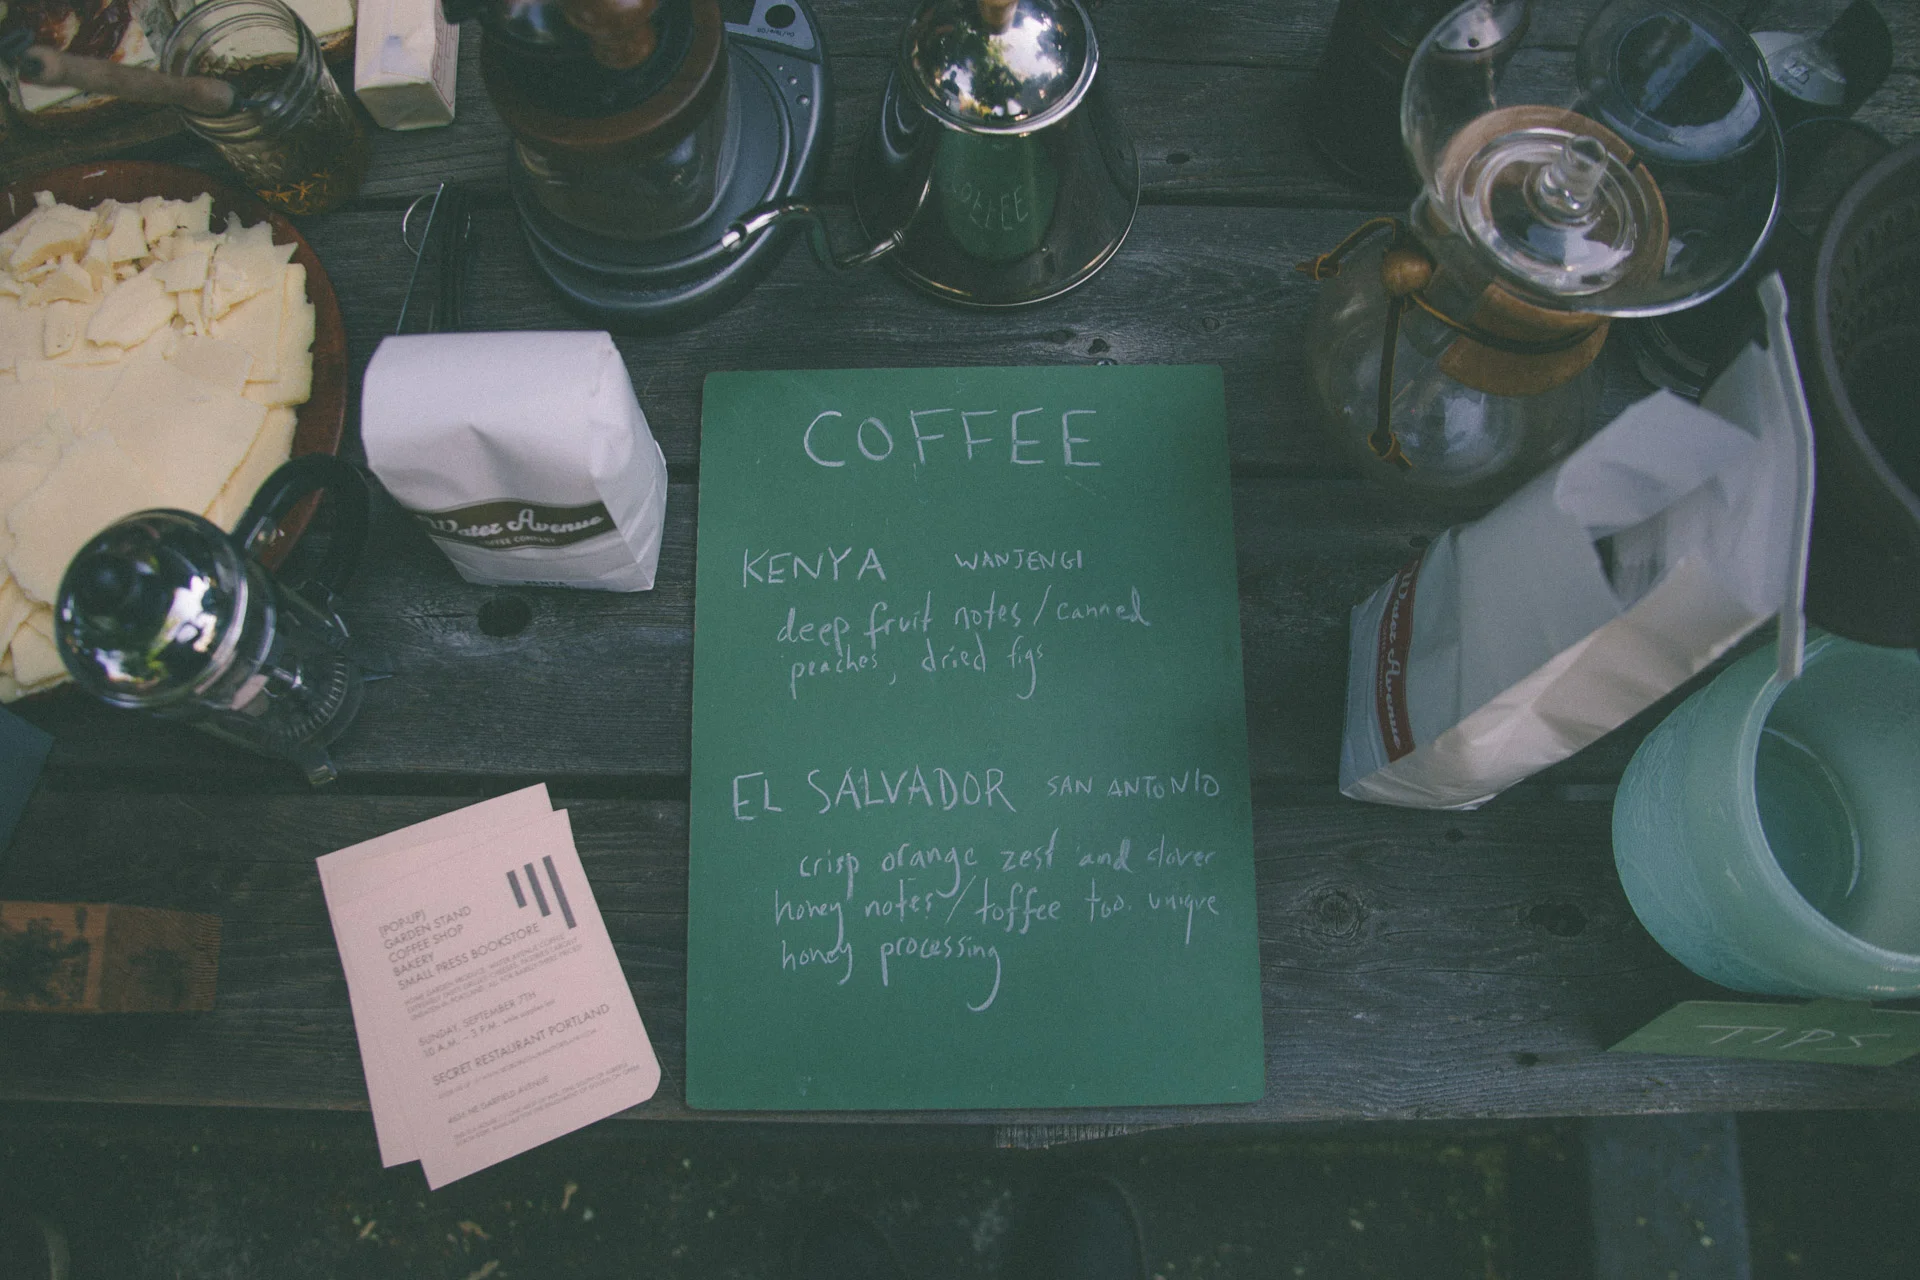 COFFEE
KENYA WANJENGI
deep fruit notes / canned
peaches, dried figs
EL SALVADOR SAN ANTONIO
crisp orange zest and clover
honey notes / toffee too. unique
honey processing
COFFEE
Water Avenue
COFFEE COMPANY
KENYA
Water Avenue
TIPS
[POP-UP]
GARDEN STAND
COFFEE SHOP
BAKERY
SMALL PRESS BOOKSTORE
SUNDAY, SEPTEMBER 7TH
10 A.M. – 3 P.M.
SECRET RESTAURANT PORTLAND
NE GARFIELD AVENUE